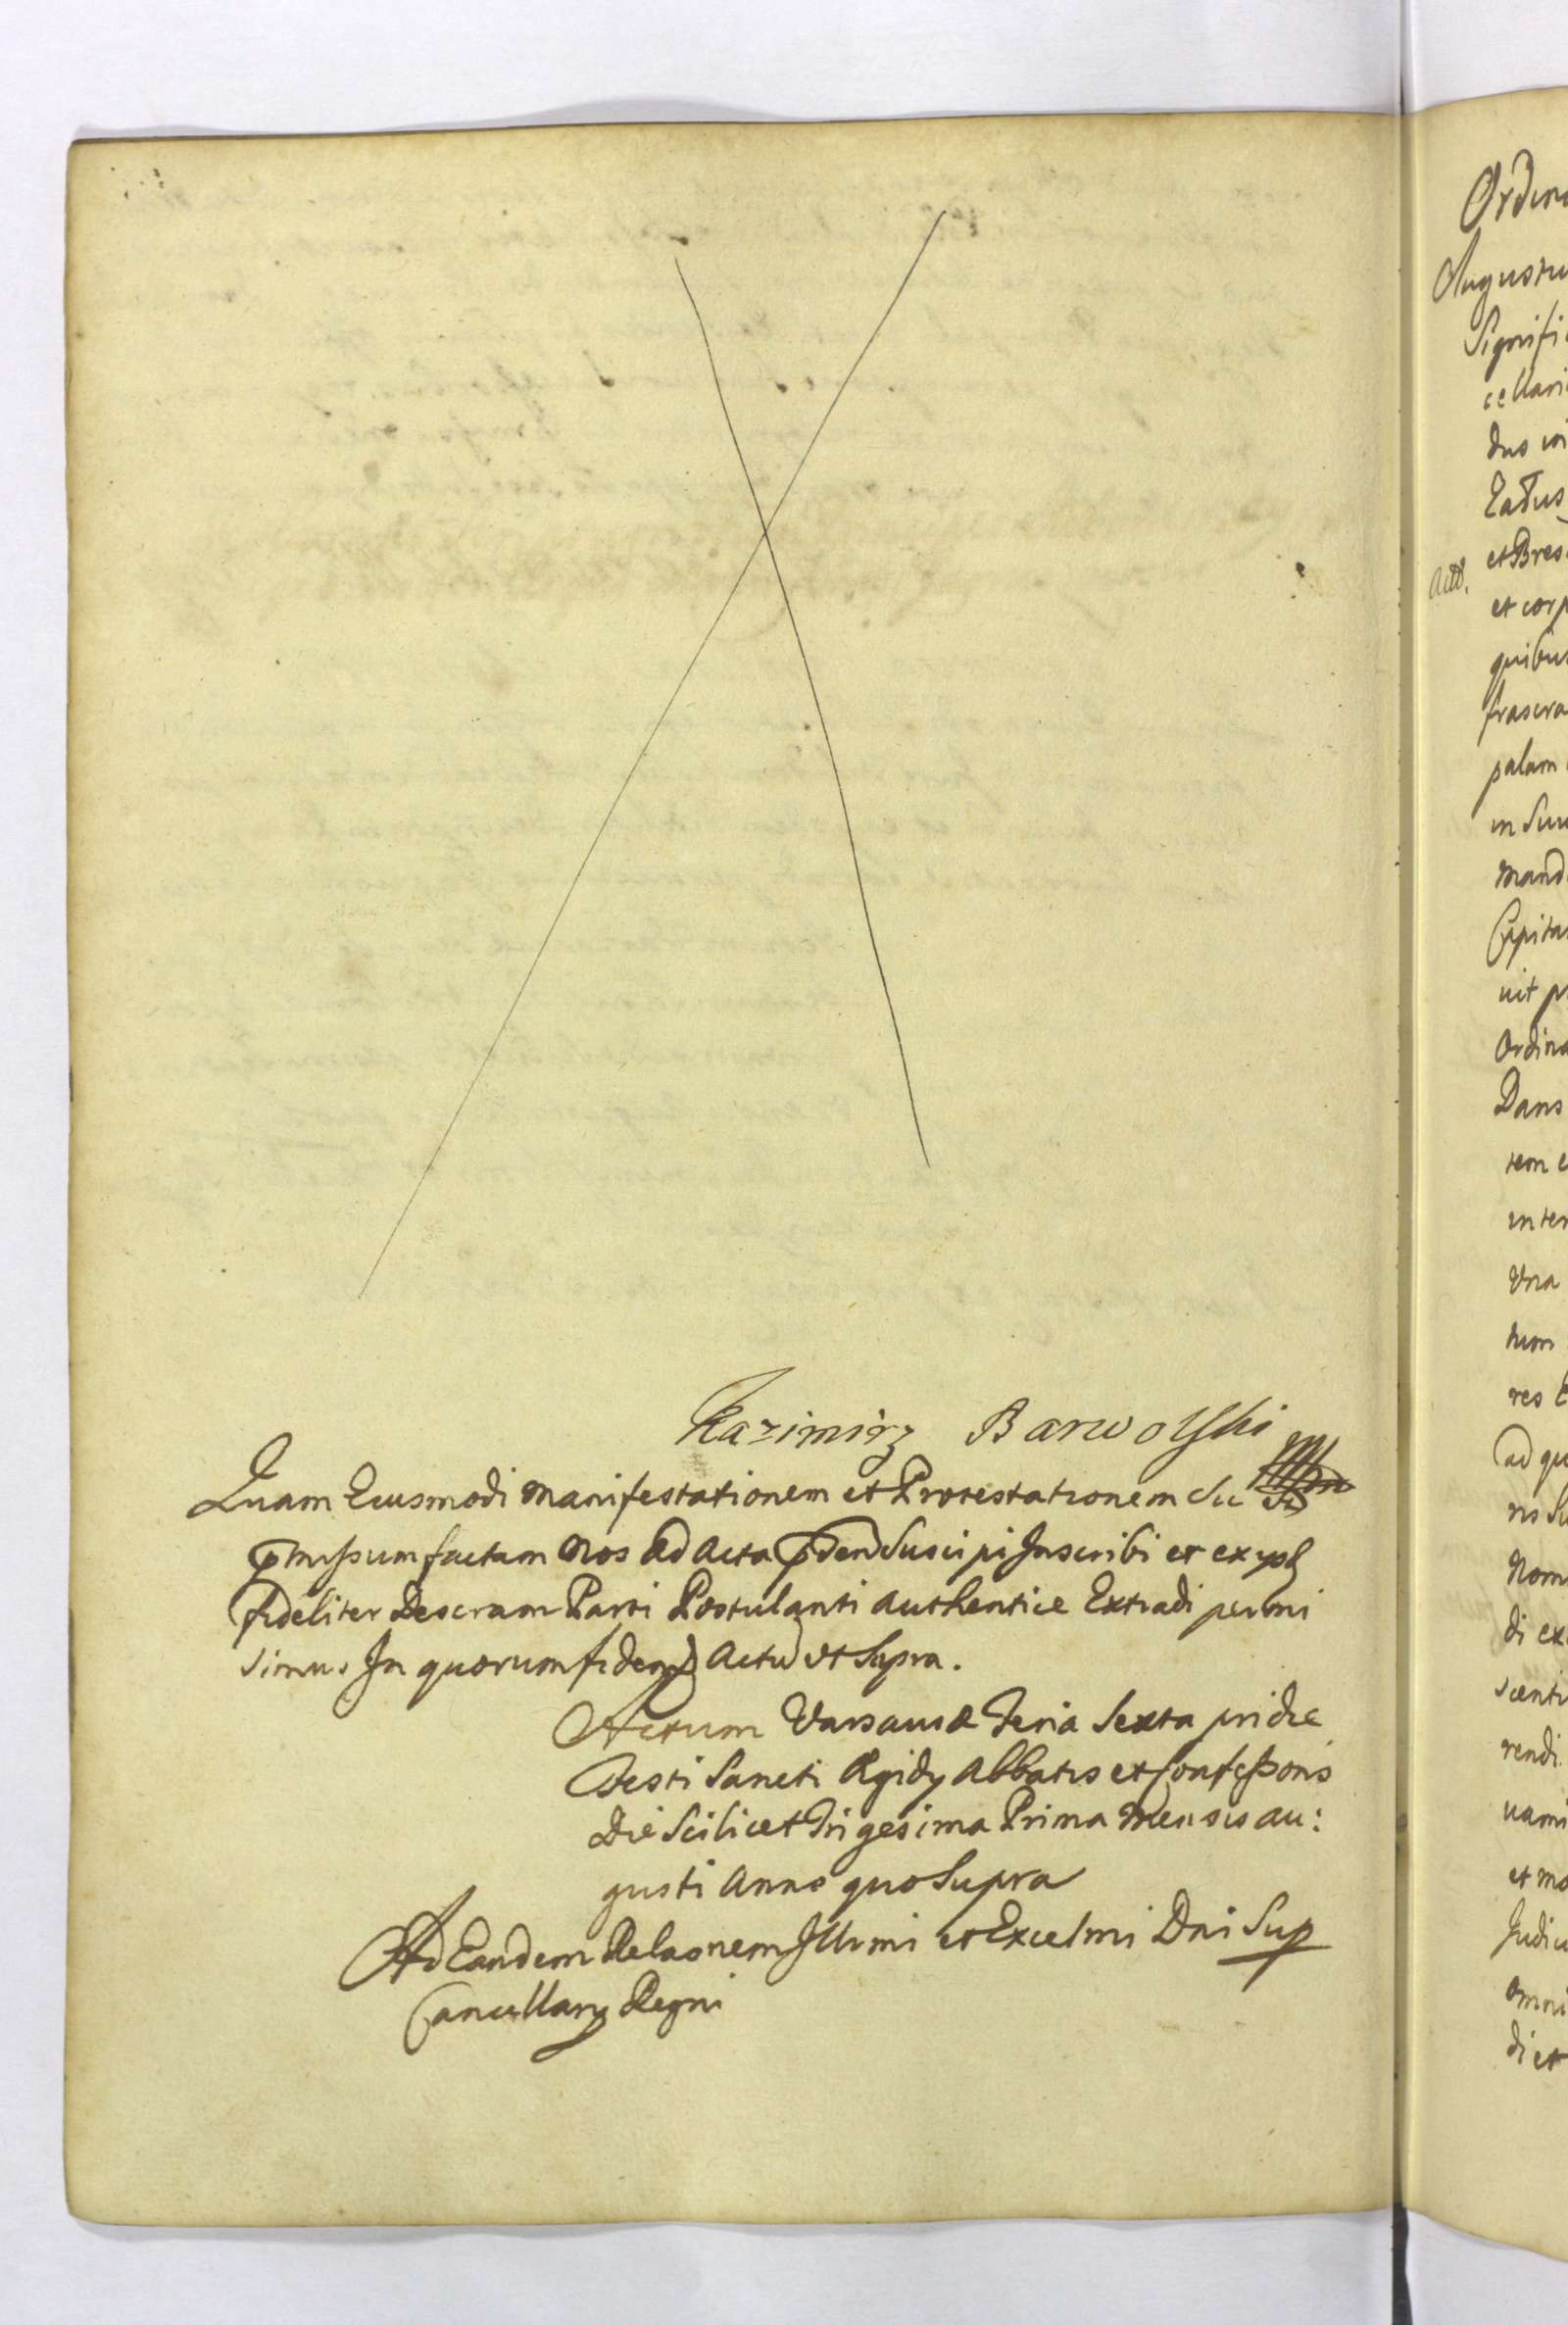 Kazimirz Barwolski
Quam Eiusmodi Manifestationem et Protestationem Sic
pmissum factam Nos ad Acta pden Suscipi Inscribi et ex ysd
fideliter Descram Parti Postulanti Authentice Extradi permi
simus In quorum fidem Actu ut Supra.
Actum Varsauiæ Feria Sexta pridie
Festi Sancti Ægidy Abbatis et Confessoris
Die Scilicet Trigesima Prima Mensis au:
gusti Anno quo Supra
Ad Eandem Relaonem Illrmi et Excelmi Dni Sup
Cancellary Regni
Ordin
Augustu
Signifi
cellari
dus
Eatus
et Bres
Actt.
et corp
quibus
frascra
palam
in Suu
Mand
Capita
uit p
Ordina
Dans
tem e
inter
Vna
tum
res
ad qu
ris Su
Nom
di ex
scenti
rendi
uami
et mo
Judiu
omni
di et